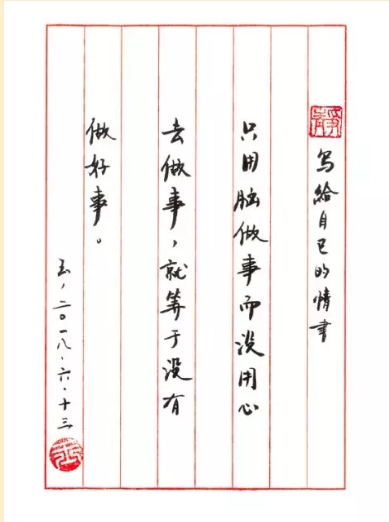 写给自己的情书
只用脑做事而没用心
去做事，就等于没有
做好事。
二〇一八.六.十三